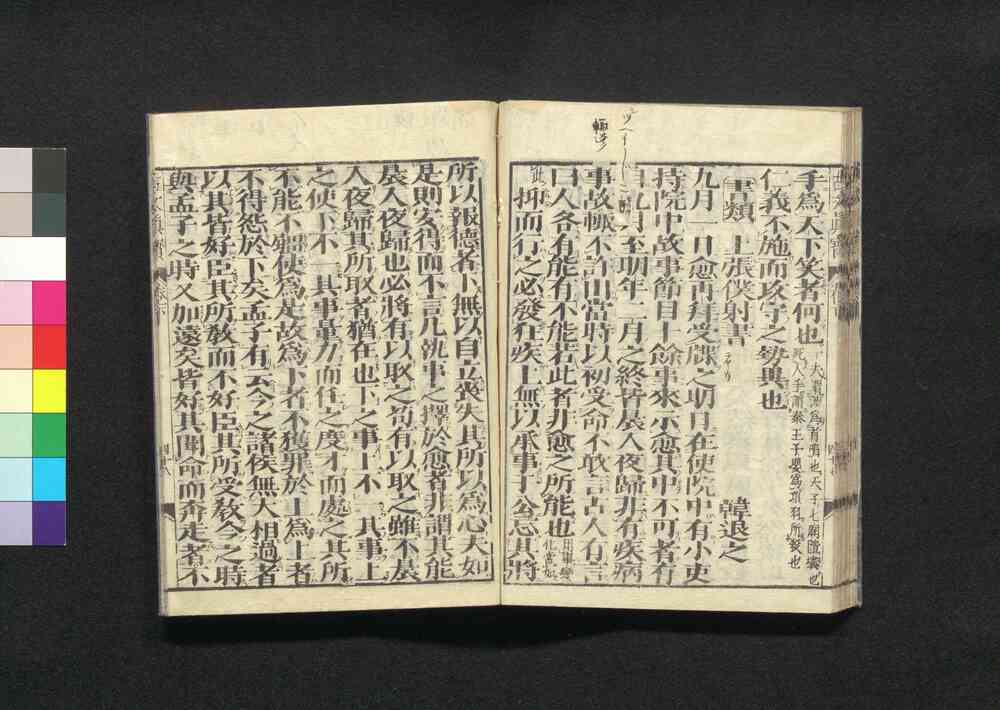 手爲天下笑者何也
仁義不施而攻守之勢異也
書類 上張僕射書 韓退之
九月一日愈再拜受牒之明日在使院中有小吏
持院中故事節目十餘事來示愈其中不可者有
自九月至明年二月之終皆晨入夜歸非有疾病
事故輒不許出當時以初受命不敢言古人有言
曰人各有能有不能若此者非愈之所能也
抑而行之必發狂疾上無以承事于公忘其將
所以報德者下無以自立喪失其所以爲心夫如
是則安得而不言凡執事之擇於愈者非謂其能
晨入夜歸也必將有以取之苟有以取之雖不晨
入夜歸其所取者猶在也下之事上不一其事上
之使下不一其事量力而任之度才而處之其所
不能不彊使爲是故爲下者不獲罪於上爲上者
不得怨於下矣孟子有云今之諸侯無大相過者
以其皆好臣其所敎而不好臣其所受敎今之時
與孟子之時又加遠矣皆好其聞命而奔走者不